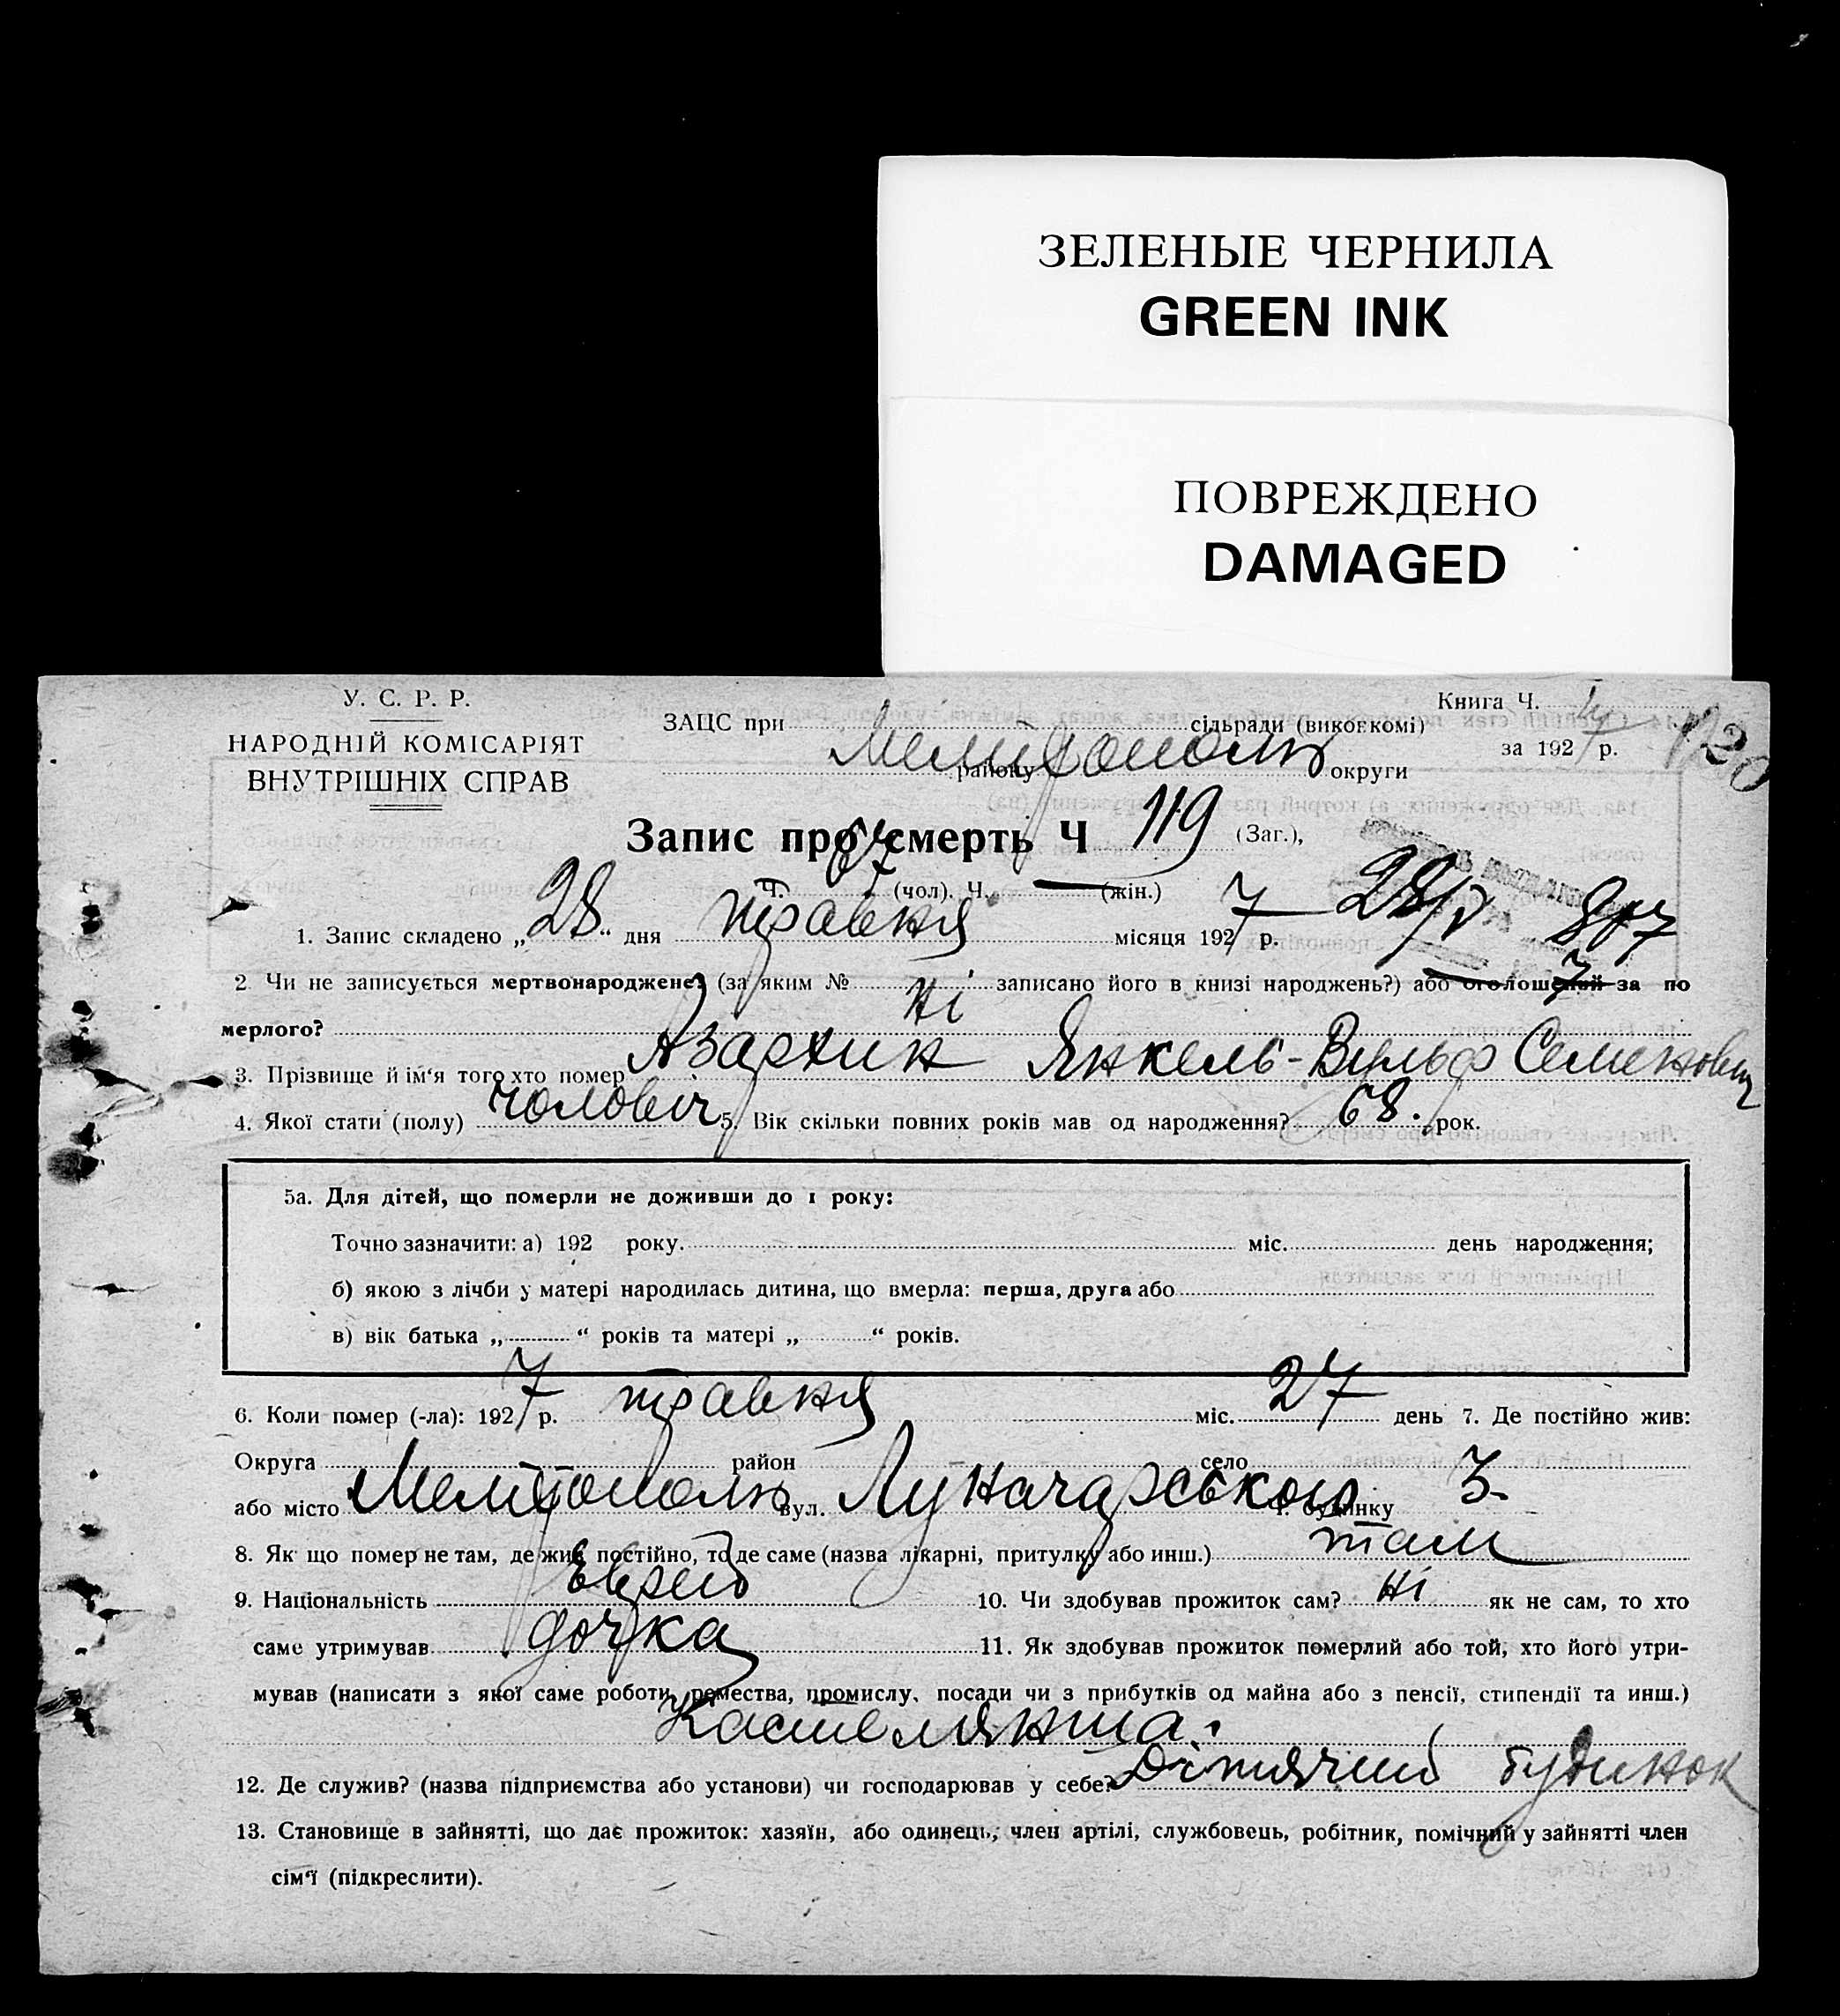 ЗЕЛЕНЫЕ ЧЕРНИЛА
GREEN INK
ПОВРЕЖДЕНО
DAMAGED
У. С. Р. Р.
НАРОДНІЙ КОМІСАРІЯТ
ВНУТРІШНІХ СПРАВ
ЗАЦС при сільради (викогкомі)
Мелітополь
району округи
Книга Ч. 4
за 1927 р.
120
Запис про смерть Ч 119 (Заг.),
Ч. 67 (чол). Ч. — (жін.)
1. Запис складено „28“ дня травня місяця 1927 р.
28/V 807
2 Чи не записується мертвонароджене? (за яким № записано його в книзі народжень?) або оголошений за по
мерлого? Ні
3. Прізвище й ім‘я того хто помер Азархин Янкель-Вульф Семенович
4. Якої стати (полу) чоловіч 5. Вік скільки повних років мав од народження? 68. рок.
5а. Для дітей, що померли не доживши до 1 року:
Точно зазначити: а) 192 року. міс. день народження;
б) якою з лічби у матері народилась дитина, що вмерла: перша, друга або
в) вік батька „ “ років та матері „ “ років.
6. Коли помер (-ла): 1927 р. травня міс. 27 день 7. Де постійно жив:
Округа район село
або місто Мелітополь вул. Луначарською Ч. будинку 3.
8. Як що помер не там, де жив постійно, то де саме (назва лікарні, притулку або инш.) там
9. Національність Еврей 10. Чи здобував прожиток сам? Ні як не сам, то хто
саме утримував дочка 11. Як здобував прожиток померлий або той, хто його утри-
мував (написати з якої саме роботи, ремества, промислу, посади чи з прибутків од майна або з пенсії, стипендії та инш.)
Кастелянша.
12. Де служив? (назва підприємства або установи) чи господарював у себе? Дітячий будинок
13. Становище в зайнятті, що дає прожиток: хазяїн, або одинець, член артілі, службовець, робітник, помічний у зайнятті член
сім‘ї (підкреслити).